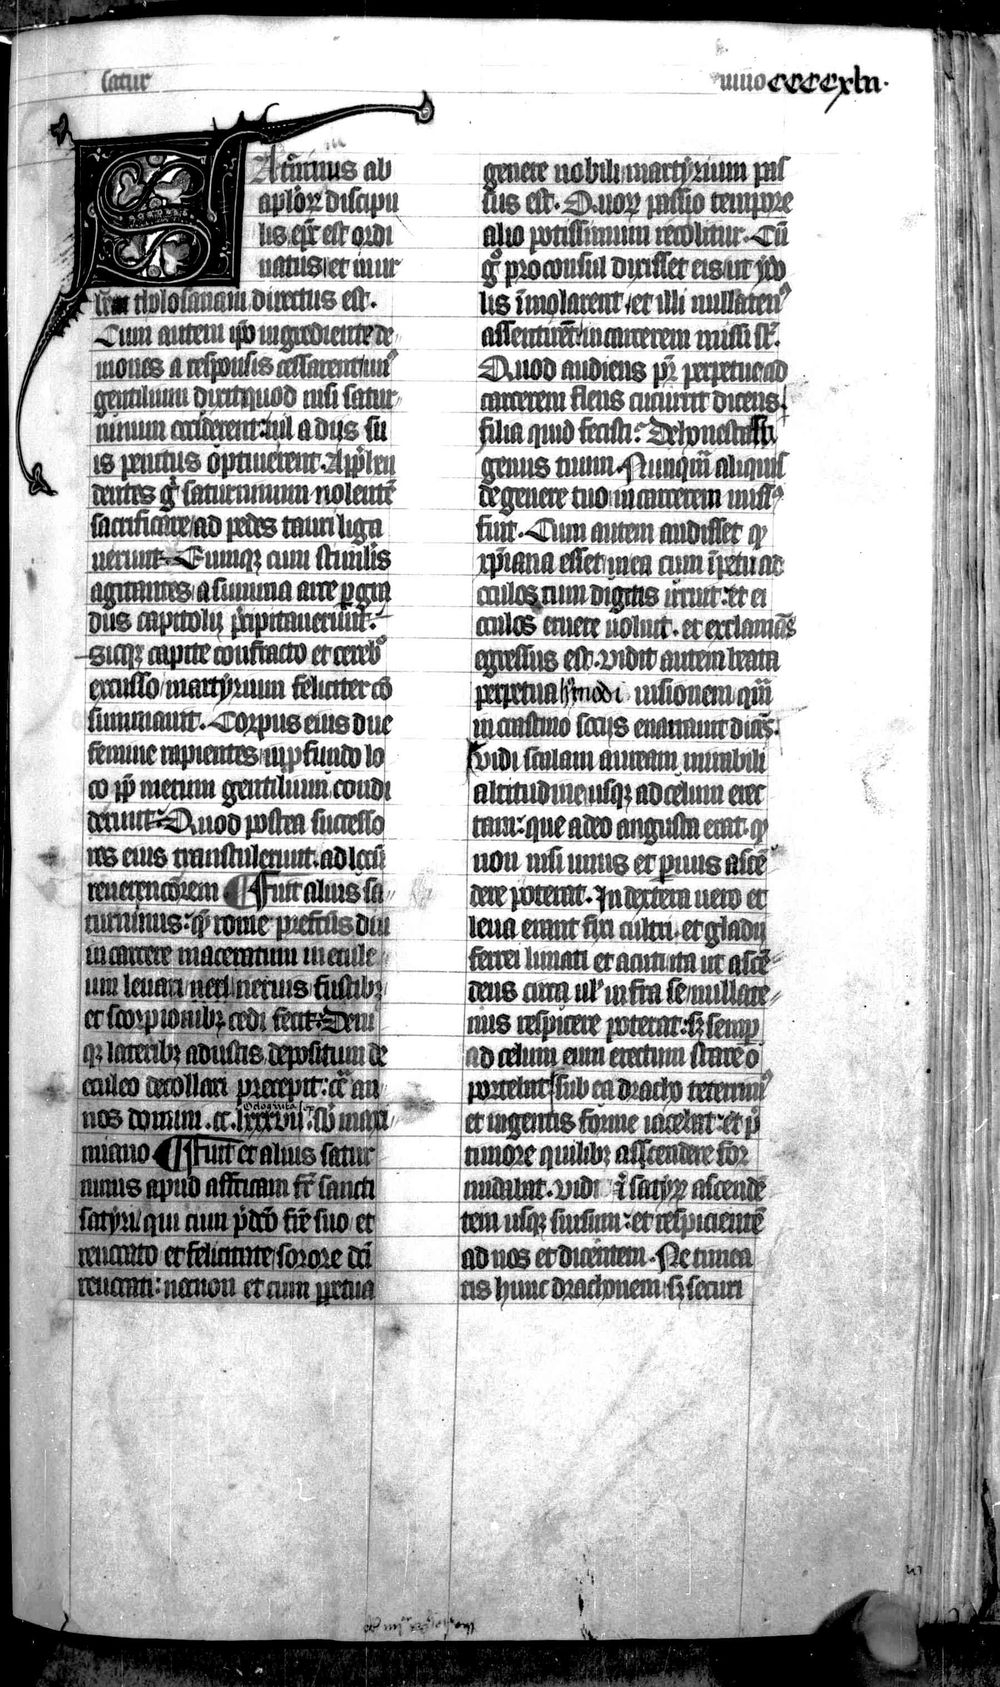 satur
nino CCCCxlii.
SAt᷑ninus ab
aplo᷑ꝝ discipu
lis ep̄c est ordi
natus et in ur
bem tholosanam directus est.
Cum autem ip̄o ingrediente de
mones a responsis cessarent unꝰ
gentilium dixit quod nisi satur
ninum occiderent: nil a diis su
is penitus optinerent. App̄hen
dentes gͦ saturninum nolentē
sacrificare ad pedes tauri liga
uerunt. Eumqꝫ cum stimulis
agitantes a summa arce ꝑ gra
dus capitolii p̄cipitauerunt.
Sicqꝫ capite confracto et cerebͦ
excusso martyrium feliciter cō
summauit. Corpus eius due
femine rapientes in ꝓfundo lo
co ꝓp̄ metum gentilium condi
derunt. Quod postea successo
res eius transtulerunt ad locū
reuerenciorem ¶ Fuit alius sa
turninus: quē rome prefectus diu
in carcere maceratum in ecule
um leuari nerꝰ neruis fustibꝫ
et scorpionibꝫ cedi fecit. Dein
qꝫ lateribꝫ adustis depositum de
eculeo decollari precepit: cͬ an
nos domini .cc.lxxxvii. sb̄ maxi
octoginta sex
miano ¶ Fuit et alius satur
ninus apud affricam fr̄ sancti
satyri qui cum p̄dc̄o fr̄e suo et
reuocato et felicitate sorore dc̄i
reuocati: necnon et cum ꝑpetua
genere nobili martyrium pas
sus est. Quoꝝ passio tempore
alio potissimum recolitur. Cū
gͦ proconsul dixisset eis ut ydo
lis īmolarent et illi nullatenꝰ
assentirent in carcerem missi st̄.
Quod audiens pr̄ perpetue ad
carcerem flens cucurrit dicens.
filia quid fecisti? Dehonestasti
genus tuum. Nunqͣm aliquis
de genere tuo in carcerem missꝰ
fuit. Cum autem audisset qꝫ
xp̄iana esset in ea cum īpetu ac
oculos cum digitis irruit: et ei
oculos eruere uoluit. et exclamās
egressus est. Vidit autem beata
perpetua hꝰmodi uisionem quā
in crastino sociis enarrauit dicēs.
Vidi scalam auream mirabili
altitudine usqꝫ ad celum erec
tam: que adeo angusta erat qꝫ
non nisi unus et paruus ascē
dere poterat. In dextera uero et
leua erant fixi cultri et gladii
ferrei limati et acuti ita ut ascē
dens circa ul' infra se nullate
nus respicere poterat: sꝫ semp̄
ad celum eum erectum stare o
portebat sub ea dracho teterrimꝰ
et ingentis forme iacebat: et p̄
timore quilibꝫ asscendere for
midabat. Vidi satyꝝ ascendē
tem usqꝫ sursum: et respicientē
ad nos et dicentem. Ne timea
tis hunc drachonem sꝫ securi